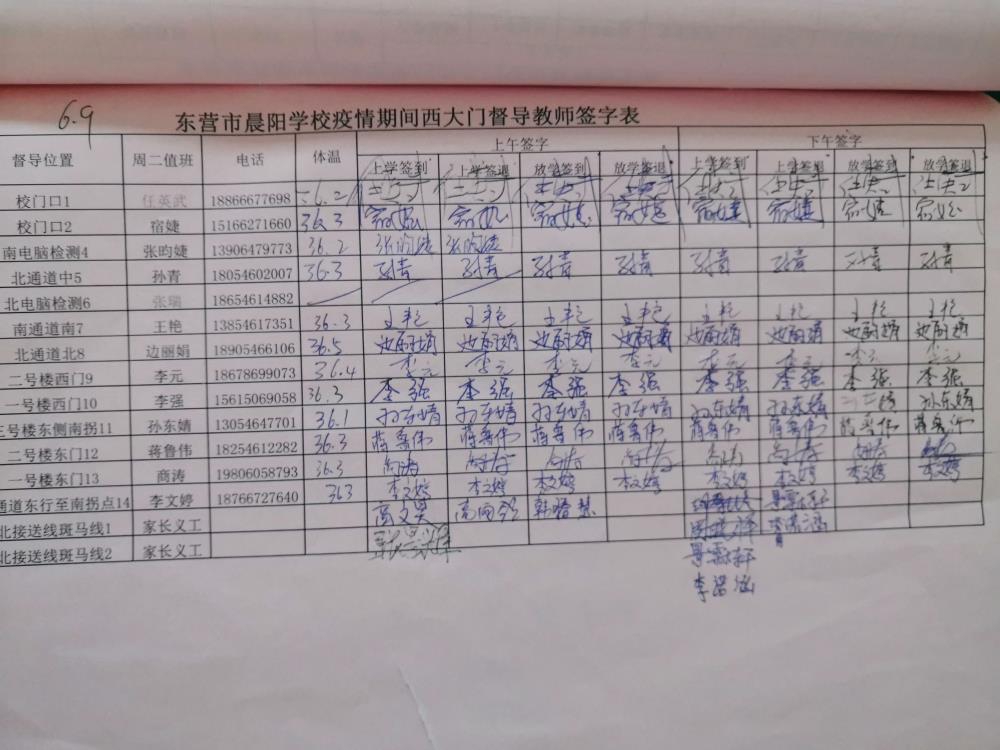 6.9
东营市晨阳学校疫情期间西大门督导教师签字表
督导位置 周二值班 电话 体温 上午签字 下午签字
上学签到 上学签退 放学签到 放学签退 上学签到 上学签退 放学签到 放学签退
校门口1 任英武 18866677698 36.2
校门口2 宿婕 15166271660 36.3 宿婕 宿婕 宿婕 宿婕 宿婕 宿婕 宿婕 宿婕
南电脑检测4 张昀婕 13906479773 36.2 张昀婕 张昀婕
北通道中5 孙青 18054602007 36.3 孙青 孙青 孙青 孙青 孙青 孙青 孙青 孙青
北电脑检测6 张瑞 18654614882
南通道南7 王艳 13854617351 36.3 王艳 王艳 王艳 王艳 王艳 王艳 王艳 王艳
北通道北8 边丽娟 18905466106 36.5 边丽娟 边丽娟 边丽娟 边丽娟 边丽娟 边丽娟 边丽娟 边丽娟
二号楼西门9 李元 18678699073 36.4 李元 李元 李元 李元 李元 李元 李元 李元
一号楼西门10 李强 15615069058 36.3 李强 李强 李强 李强 李强 李强 李强 李强
三号楼东侧南拐11 孙东婧 13054647701 36.1 孙东婧 孙东婧 孙东婧 孙东婧 孙东婧 孙东婧 孙东婧
二号楼东门12 蒋鲁伟 18254612282 36.3 蒋鲁伟 蒋鲁伟 蒋鲁伟 蒋鲁伟 蒋鲁伟 蒋鲁伟 蒋鲁伟 蒋鲁伟
一号楼东门13 商涛 19806058793 36.3 商涛 商涛 商涛 商涛 商涛 商涛 商涛
通道东行至南拐点14 李文婷 18766727640 363 李文婷 李文婷 李文婷 李文婷 李文婷 李文婷 李文婷 李文婷
北接送线斑马线1 家长义工
北接送线斑马线2 家长义工